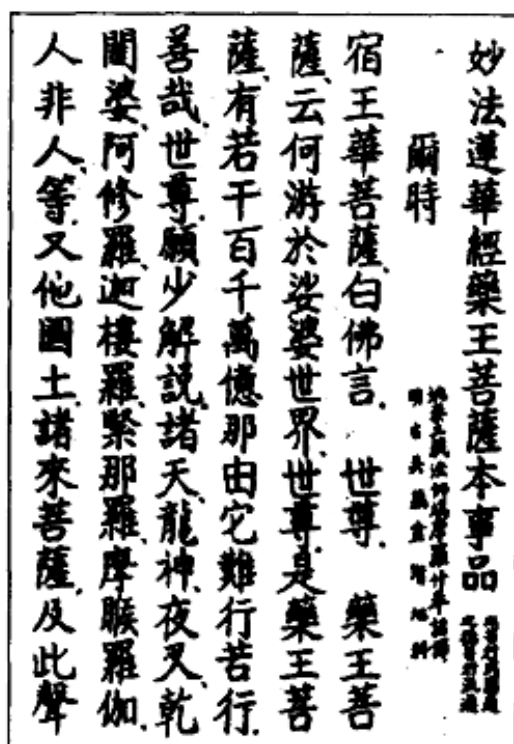 妙法蓮華經藥王菩薩本事品
爾時
宿王華菩薩、白佛言、世尊、藥王菩
薩、云何游於娑婆世界、世尊、是藥王菩
薩、有若干百千萬億那由它難行苦行、
善哉、世尊、願少解説、諸天、龍神、夜叉、乾
闥婆、阿修羅、迦樓羅、緊那羅、摩睺羅伽、
人非人、等、又他國土、諸來菩薩、及此聲